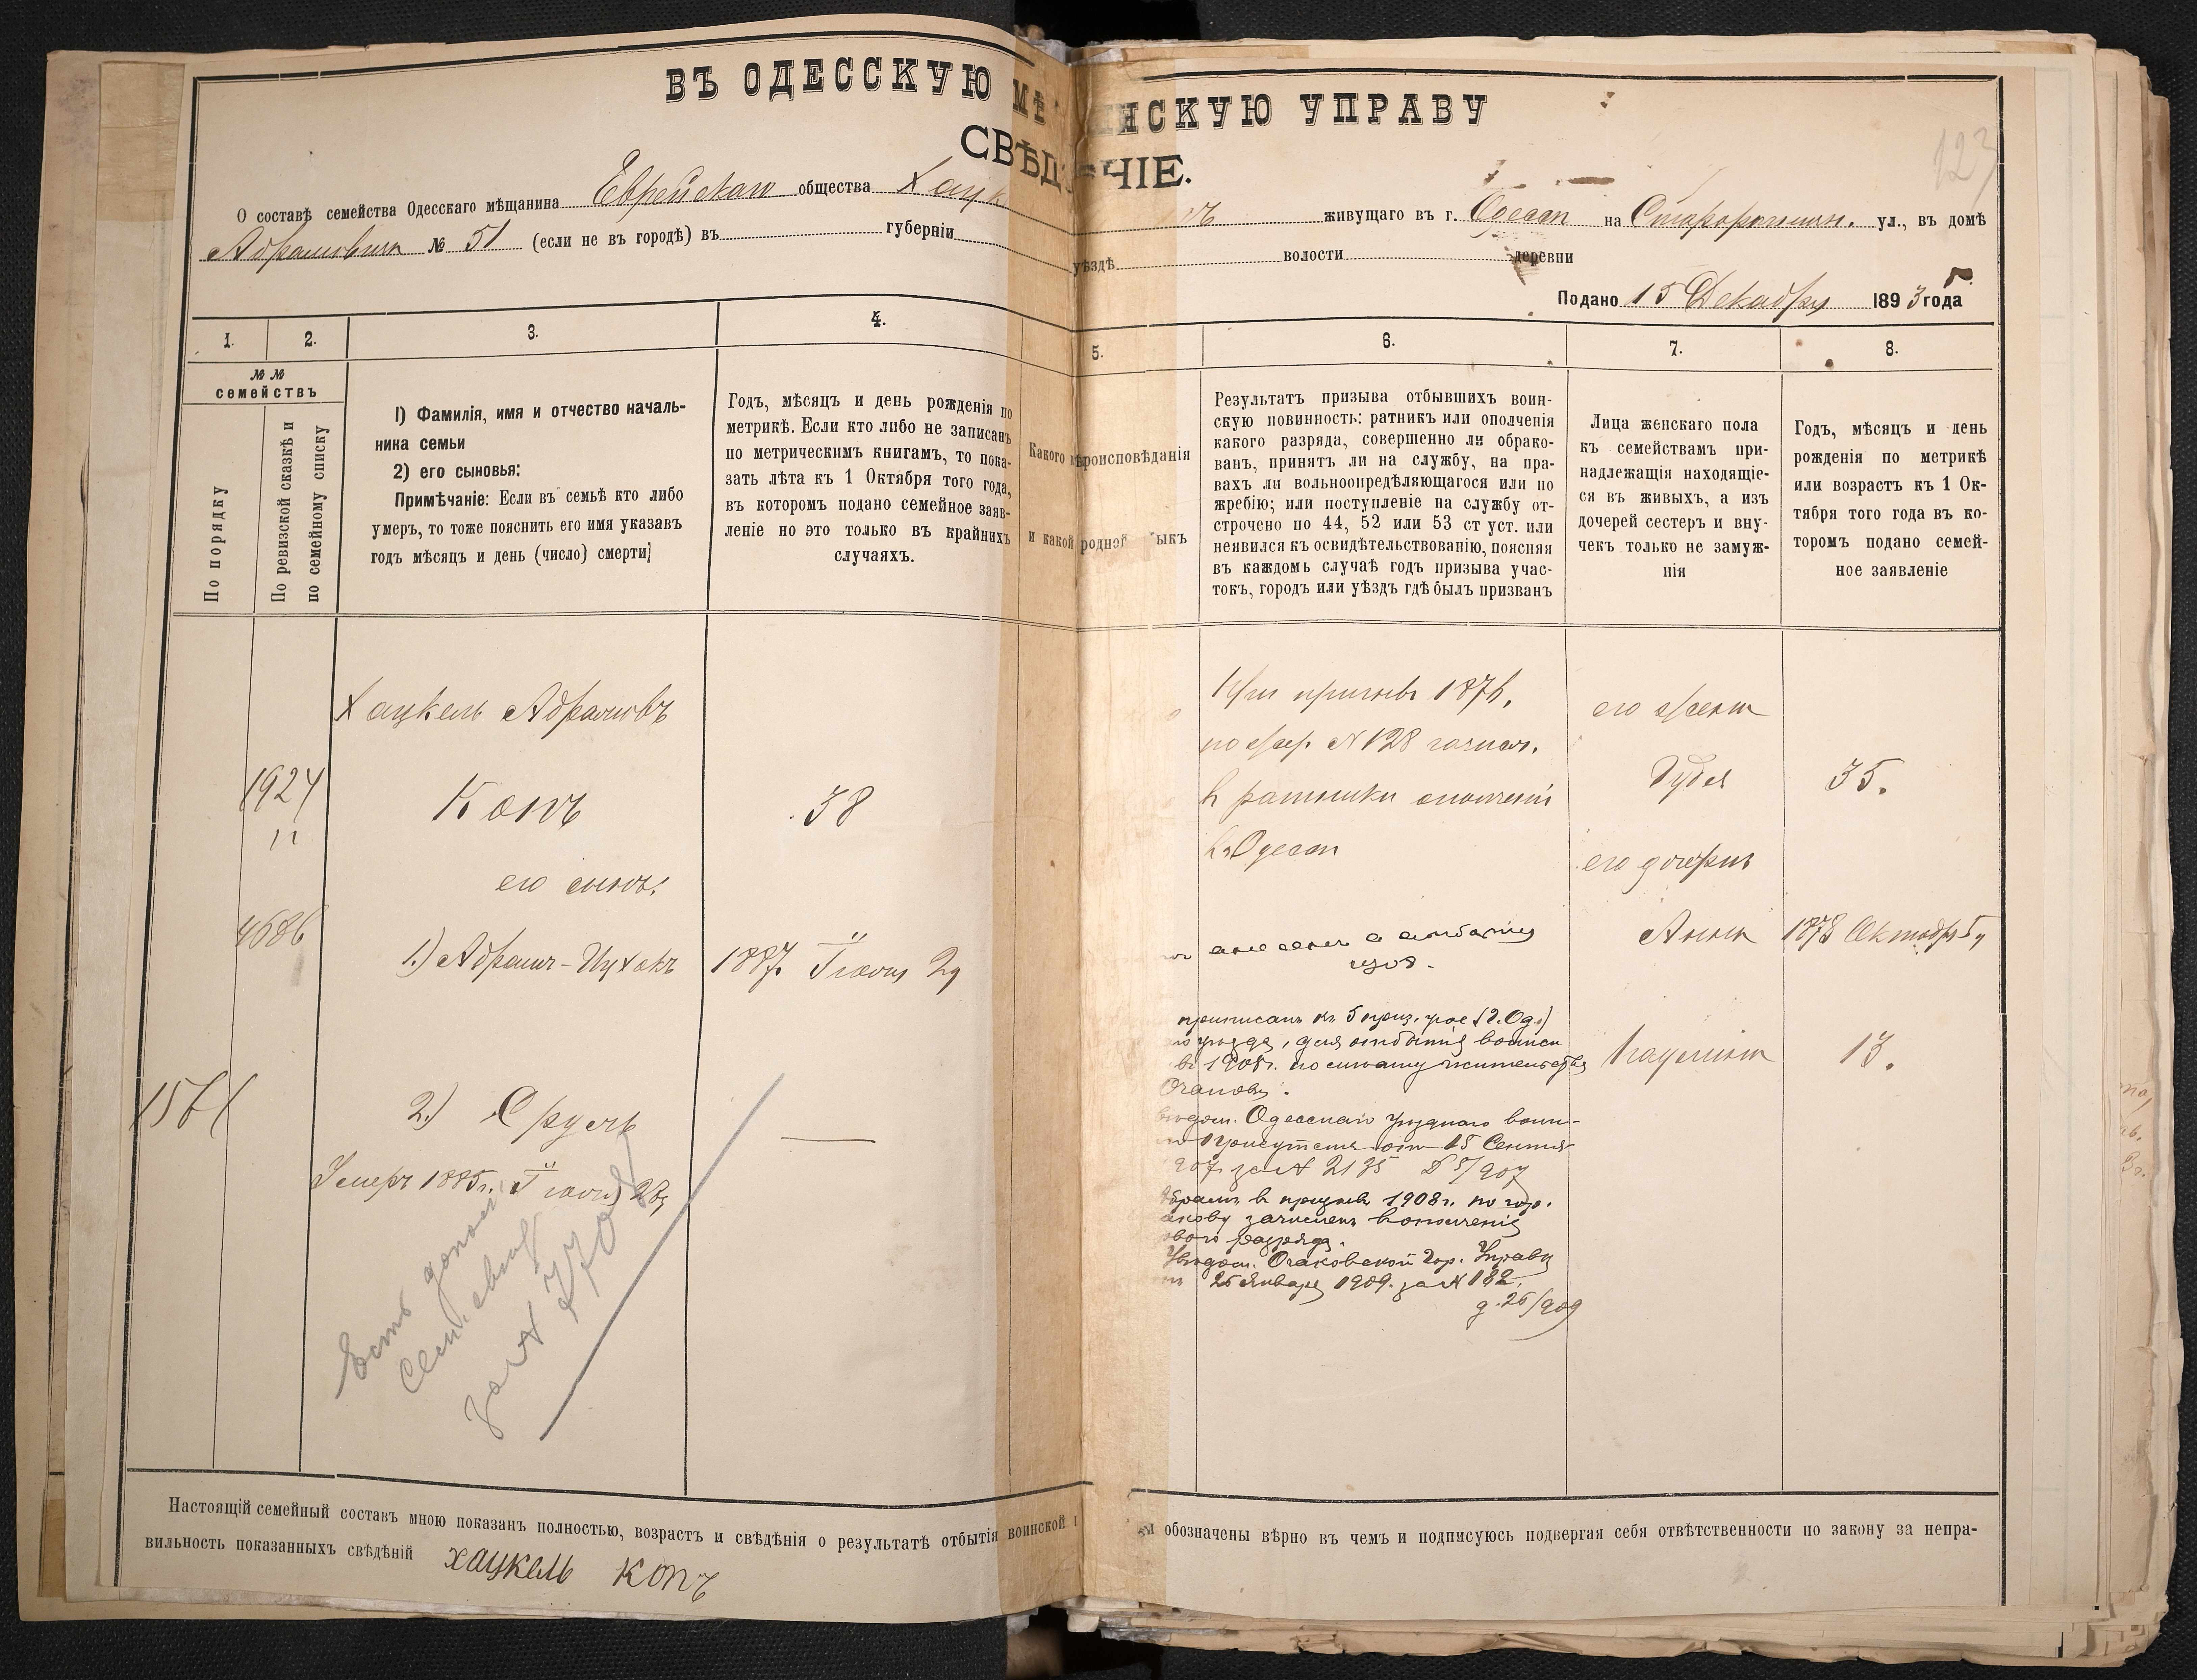 ВЪ ОДЕССКУЮ МѢ НСКУЮ УПРАВУ
СВѢД НІЕ.
123
О составѣ семейства Одесскаго мѣщанина Еврейскаго общества Хацк живущаго въ г. Одессѣ на Старопорт. ул., въ домѣ
Абрамовича № 51 (если не въ городѣ) въ губерніи уѣздѣ волости деревни
Подано 15 Декабря 1893 года
1. 2. 3. 4. 5. 6. 7. 8.
№ №
семействъ
По порядку
По ревизской сказкѣ и
по семейному списку
1) Фамилія, имя и отчество началь-
ника семьи
2) его сыновья:
Примѣчаніе: Если въ семьѣ кто либо
умеръ, то тоже пояснить его имя указавъ
годъ мѣсяцъ и день (число) смерти
Годъ, мѣсяцъ и день рожденія по
метрикѣ. Если кто либо не записанъ
по метрическимъ книгамъ, то пока-
зать лѣта къ 1 Октября того года,
въ которомъ подано семейное заяв-
леніе но это только въ крайнихъ
случаяхъ.
Какого вѣроисповѣданія
и какой родной языкъ
Результатъ призыва отбывшихъ воин-
скую повинность: ратникъ или ополченія
какого разряда, совершенно ли обрако-
ванъ, принятъ ли на службу, на пра-
вахъ ли вольноопредѣляющагося или по
жребію; или поступленіе на службу от-
строчено по 44, 52 или 53 ст уст. или
неявился къ освидѣтельствованію, поясняя
въ каждомъ случаѣ годъ призыва учас-
токъ, городъ или уѣздъ гдѣ былъ призванъ
Лица женскаго пола
къ семействамъ при-
надлежащія находящіе-
ся въ живыхъ, а изъ
дочерей сестеръ и вну-
чекъ только не замуж-
нія
Годъ, мѣсяцъ и день
рожденія по метрикѣ
или возрастъ къ 1 Ок-
тября того года въ ко-
торомъ подано семей-
ное заявленіе
Хацкель Абрамовъ
1924
Копъ
38
его сыновья:
4686
1.) Абрамъ-Ицхокъ
1887. Іюня 29
1561
2.) Сруль
Умеръ 1885г. Іюня 28
Есть дополн.
Сем.
за №
При призывѣ 1876,
по жер. № 128 зачисл.
в ратники ополченія
въ Одессѣ
приписанъ къ 5 приз. уч. (г. Од.)
уѣзда, для отбытія воинск
въ 1908г. по списку жительства
Очаковъ.
Одесскаго уѣзднаго воин-
Присутствія отъ 15 Сентяб
907 за № 2135 Д 5/907
Абрамъ в призывъ 1908г. по гор.
зачисленъ в ополченіе
разряда.
Увѣдом. Очаковской Гор. Управы
25 Января 1909. за № 182.
д. 26/909
его жена
Дубея
35.
его дочери
Анна
1878 Октября
13.
Настоящій семейный составъ мною показанъ полностью, возрастъ и свѣдѣнія о результатѣ отбытія воинской обозначены вѣрно въ чемъ и подписуюсь подвергая себя отвѣтственности по закону за непра-
вильность показанныхъ свѣдѣній хацкель копъ